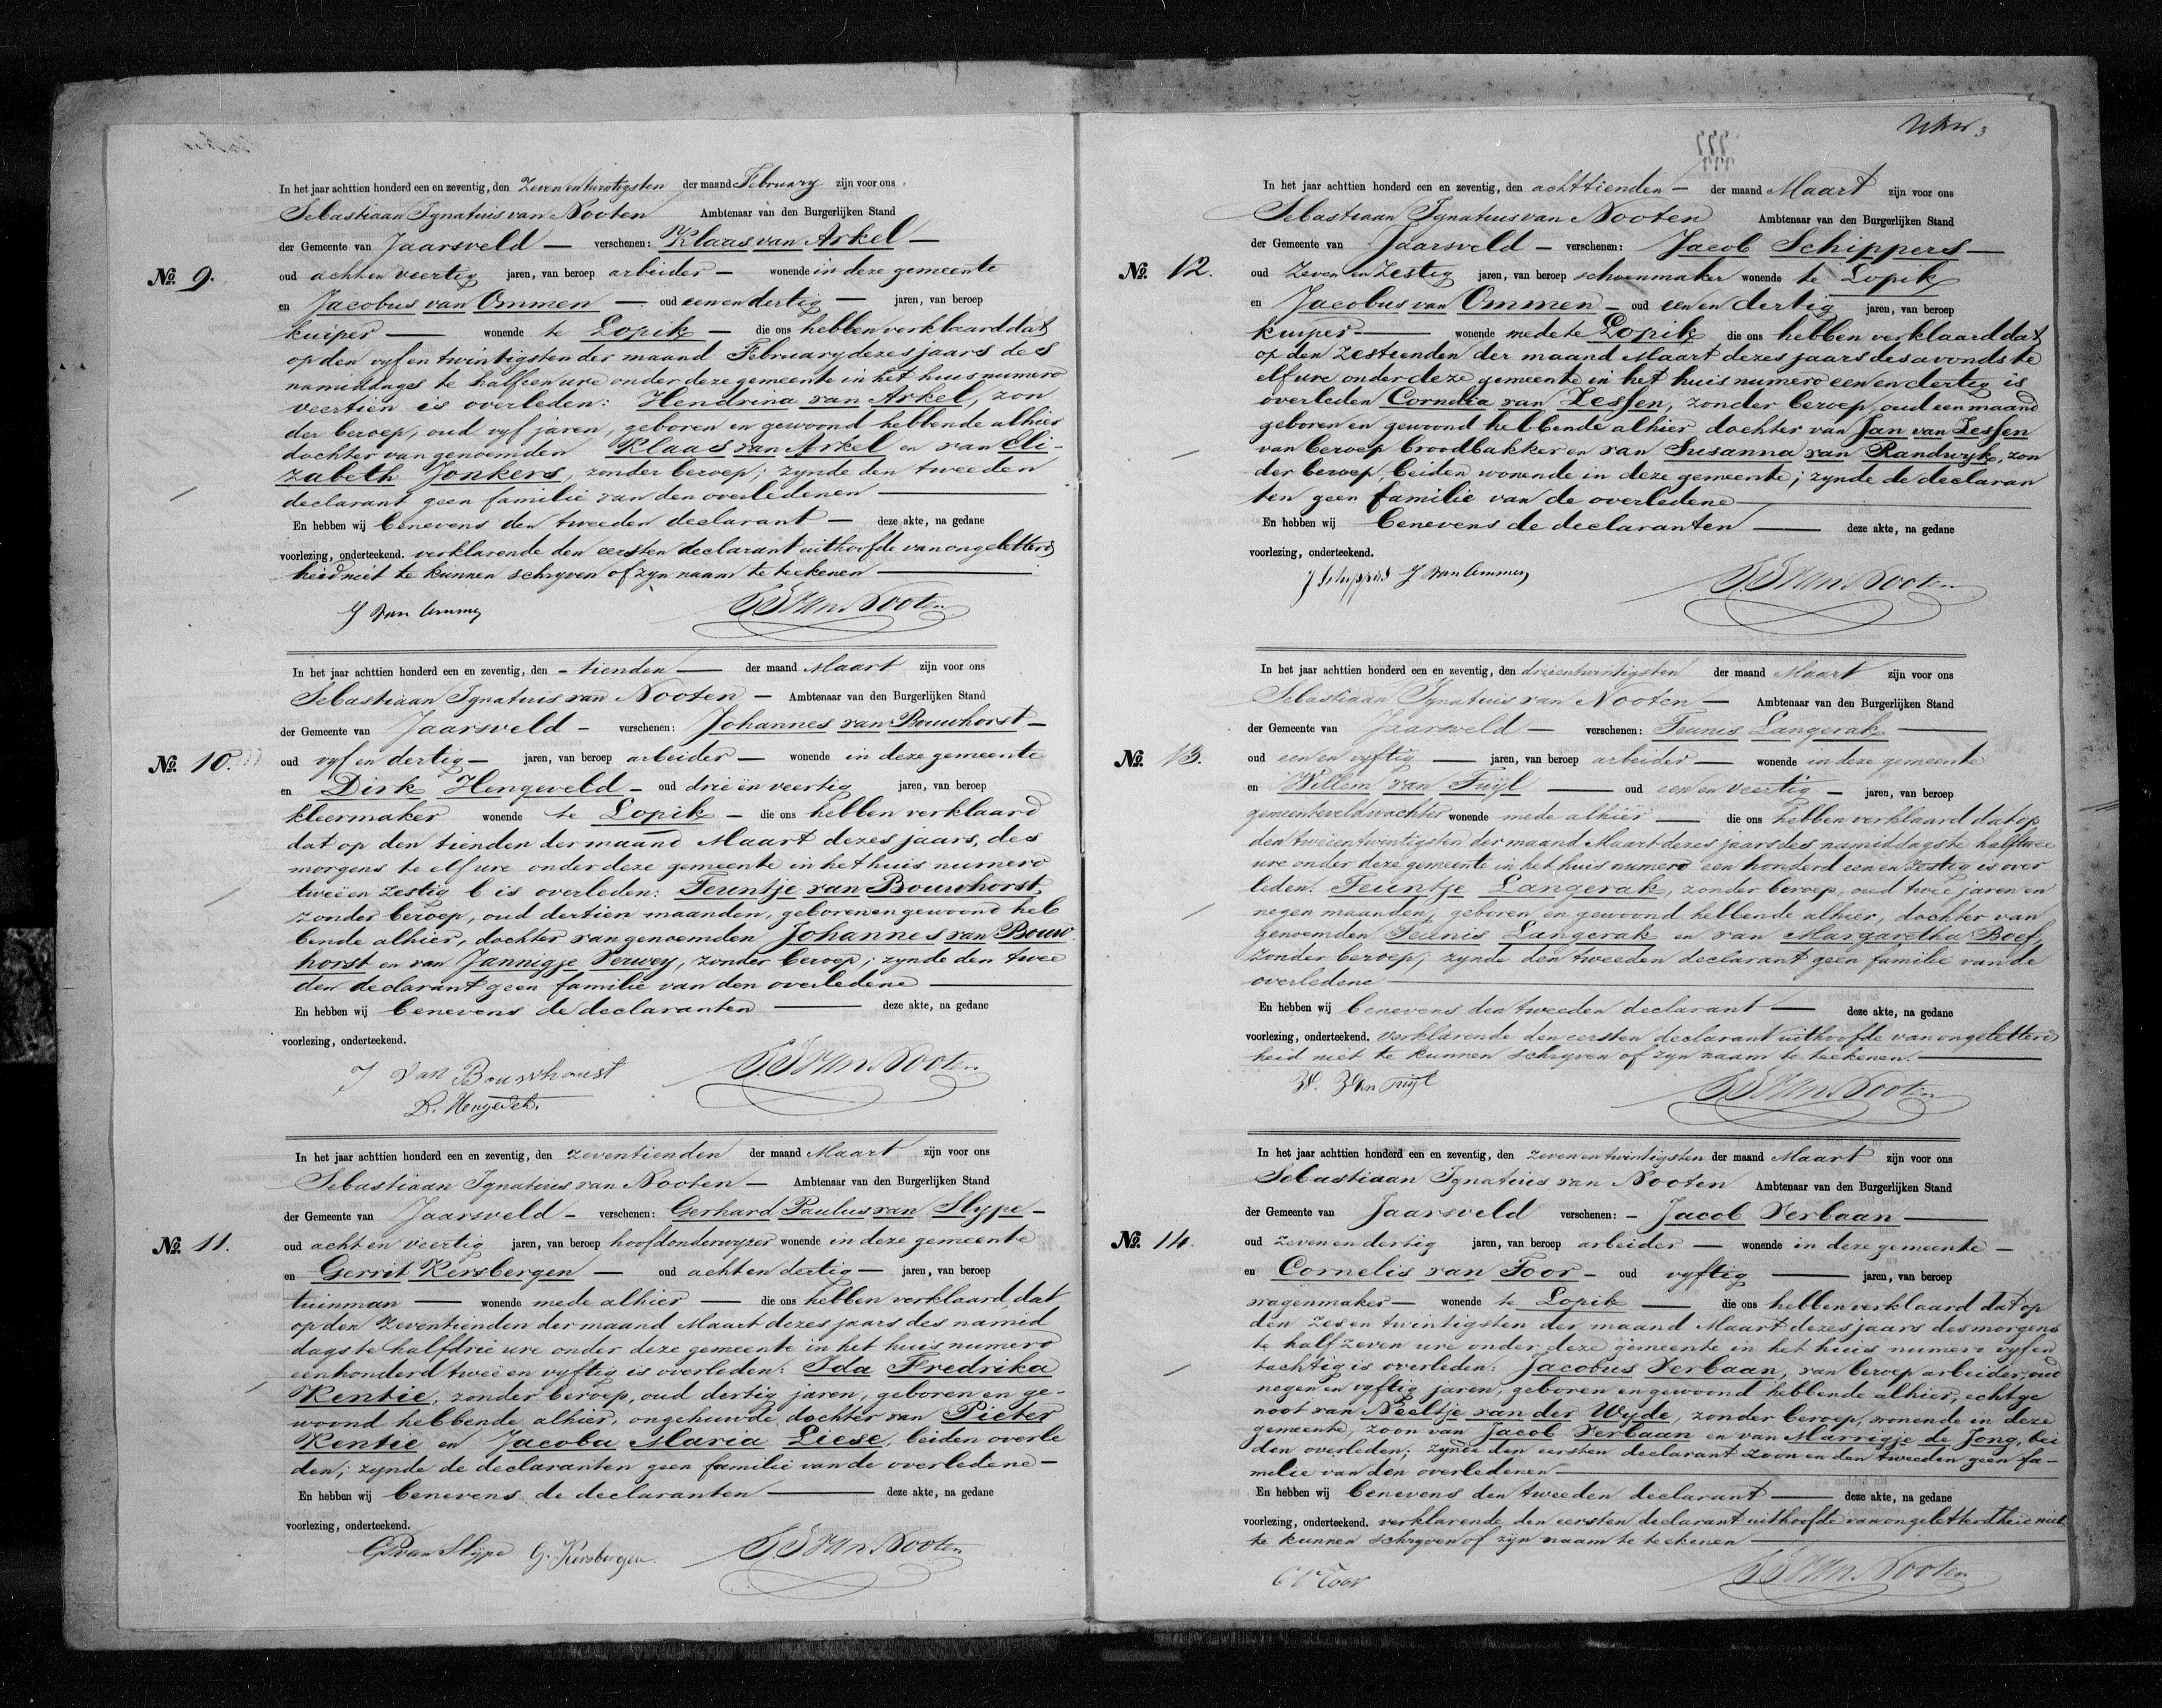 In het jaar achttien honderd een en zeventig, den Zeven en twintigsten der maand February zijn voor ons
Sebastiaan Ignatius van Nooten Ambtenaar van den Burgerlijken Stand
der Gemeente van Jaarsveld — verschenen: Klaas van Arkel —
No. 9. oud acht en veertig jaren, van beroep arbeider — wonende in deze gemeente
en Jacobus van Ommen — oud een en dertig — jaren, van beroep
kuiper — wonende te Lopik — die ons hebben verklaard dat
op den vyf en twintigsten der maand February dezes jaars des
namiddages te half een ure onder deze gemeente in het huis numero
veertien is overleden: Hendrina van Arkel, zon
der beroep, oud vyf jaren, geboren en gewoond hebbende alhier
dochter van genoemden Klaas van Arkel en van Eli-
zabeth Jonkers, zonder beroep; zynde den tweeden
declarant geen familie van den overledenen —
En hebben wij benevens den tweeden declarant — deze akte, na gedane
voorlezing, onderteekend. verklarende den eersten declarant uithoofde van ongeletterd
heid niet te kunnen schryven of zyn naam te teekenen —
J van Ommen S.I. van Nooten
In het jaar achttien honderd een en zeventig, den - tienden — der maand Maart zijn voor ons
Sebastiaan Ignatius van Nooten — Ambtenaar van den Burgerlijken Stand
der Gemeente van Jaarsveld — verschenen: Johannes van Bouwhorst —
No. 10. oud vyf en dertig — jaren, van beroep arbeider — wonende in deze gemeente
en Dirk Hengeveld — oud drie en veertig jaren, van beroep
kleermaker wonende te Lopik — die ons hebben verklaard
dat op den tienden der maand Maart dezes jaars, des
morgens te elf ure onder deze gemeente in het huis numero
twee en zestig b is overleden: Teuntje van Bouwhorst,
zonder beroep, oud dertien maanden, geboren en gewoond heb
bende alhier, dochter van genoemden Johannes van Bouw
horst en van Jannigje Verwey, zonder beroep; zynde den twee
den declarant geen familie van den overledene —
En hebben wij benevens de declaranten — deze akte, na gedane
voorlezing, onderteekend.
J van Bouwhorist S.I. van Nooten
D. Hengeveld.
In het jaar achttien honderd een en zeventig, den zeventienden der maand Maart zijn voor ons
Sebastiaan Ignatius van Nooten — Ambtenaar van den Burgerlijken Stand
der Gemeente van Jaarsveld — verschenen: Gerhard Paulus van Slype —
No. 11. oud acht en veertig jaren, van beroep hoofdonderwyzer wonende in deze gemeente
en Gerrit Kersbergen — oud acht en dertig — jaren, van beroep
tuinman — wonende mede alhier — die ons hebben verklaard, dat
op den Zeventienden der maand Maart dezes jaars des namid
dags te half drie ure onder deze gemeente in het huis numero
eenhonderd twee en vyftig is overleden: Ida Fredrika
Kentie, zonder beroep, oud dertig jaren, geboren en ge-
woond hebbende alhier, ongehuwde dochter van Pieter
Kentie en Jacoba Maria Liese, beiden overle
den; zynde de declaranten geen familie van de overledene —
En hebben wij benevens de declaranten — deze akte, na gedane
voorlezing, onderteekend.
GP van Slype G. Kersbergen. S.I. van Nooten
In het jaar achttien honderd een en zeventig, den achttienden — der maand Maart zijn voor ons
Sebastiaan Ignatius van Nooten Ambtenaar van den Burgerlijken Stand
der Gemeente van Jaarsveld — verschenen: Jacob Schippers —
No. 12. oud Zeven en Zestig jaren, van beroep schoenmaker wonende te Lopik
en Jacobus van Ommen — oud een en dertig jaren, van beroep
kuiper — wonende mede te Lopik die ons hebben verklaard dat
op den zestienden der maand Maart dezes jaars des avonds te
elf ure onder deze gemeente in het huis numero een en dertig is
overleden Cornelia van Zessen, zonder beroep, oud een maand
geboren en gewoond hebbende alhier dochter van Jan van Zessen
van beroep broodbakker en van Susanna van Randwyk, zon
der beroep, beiden wonende in deze gemeente; zynde de declaran
ten geen familie van de overledene —
En hebben wij benevens de declaranten — deze akte, na gedane
voorlezing, onderteekend.
J Schippers J van Ommen S.I. van Nooten
In het jaar achttien honderd een en zeventig, den drieentwintigsten der maand Maart zijn voor ons
Sebastiaan Ignatius van Nooten — Ambtenaar van den Burgerlijken Stand
der Gemeente van Jaarsveld — verschenen: Teunis Langerak —
No. 13. oud een en vyftig — jaren, van beroep arbeider — wonende in deze gemeente
en Willem van Tuyl — oud een en veertig — jaren, van beroep
gemeenteveldwachter wonende mede alhier — die ons hebben verklaard dat op
den tweeentwintigsten der maand Maart dezes jaars des namiddags te half twee
ure onder deze gemeente in het huis numero een honderd een en zestig is over
leden: Teuntje Langerak, zonder beroep, oud twee jaren en
negen maanden, geboren en gewoond hebbende alhier, dochter van
genoemden Teunis Langerak en van Margaretha Boef,
zonder beroep; zynde den tweeden declarant geen familie van de
overledene —
En hebben wij benevens den tweeden declarant — deze akte, na gedane
voorlezing, onderteekend. verklarende den eersten declarant uithoofde van ongeletterd
heid niet te kunnen schryven of zyn naam te teekenen. —
W. Van Tuijl S.I. van Nooten
In het jaar achttien honderd een en zeventig, den zeven en twintigsten der maand Maart zijn voor ons
Sebastiaan Ignatius van Nooten Ambtenaar van den Burgerlijken Stand
der Gemeente van Jaarsveld verschenen: — Jacob Verbaan —
No. 14. oud zeven en dertig jaren, van beroep arbeider — wonende in deze gemeente —
en Cornelis van Toor — oud vyftig — jaren, van beroep
wagenmaker — wonende te Lopik — die ons hebben verklaard dat op
den zes en twintigsten der maand Maart dezes jaars des morgens
te half zeven ure onder deze gemeente in het huis numero vyf en
tachtig is overleden: Jacobus Verbaan, van beroep arbeider, oud
negen en vyftig jaren, geboren en gewoond hebbende alhier, echtge
noot van Neeltje van der Wyde, zonder beroep, wonende in deze
gemeente, zoon van Jacob Verbaan en van Marrigje de Jong, bei
den overleden; zynde den eersten declarant zoon en den tweeden geen fa-
melie van den overledenen —
En hebben wij benevens den tweeden declarant — deze akte, na gedane
voorlezing, onderteekend. verklarende den eersten declarant uithoofde van ongeletterdheid niet
te kunnen schryven of zyn naam te teekenen —
C V Toor S.I. van Nooten